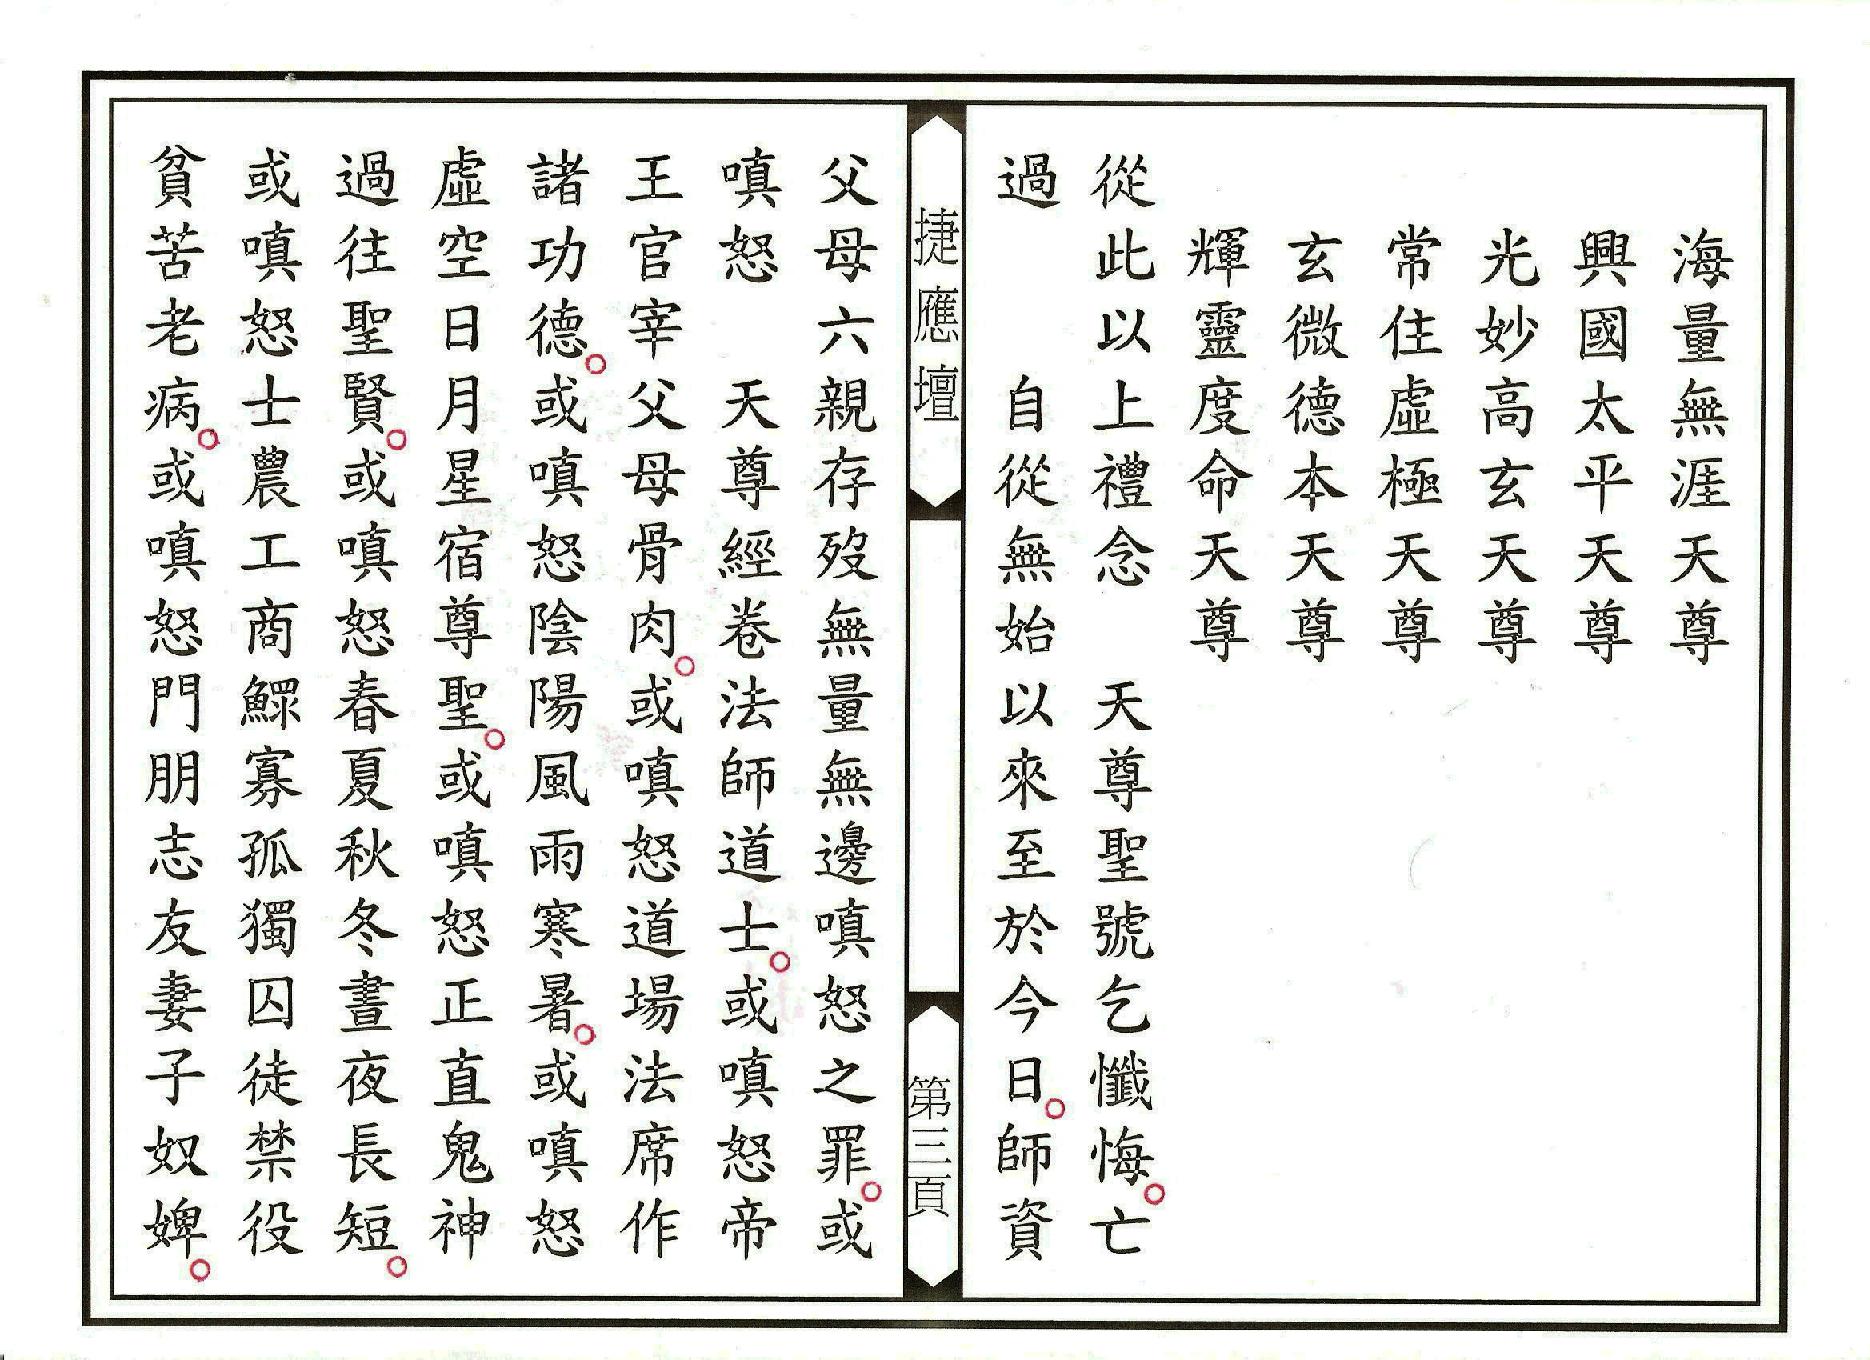 海量無涯天尊
興國太平天尊
光妙高玄天尊
常住虛極天尊
玄微德本天尊
輝靈度命天尊
從此以上禮念　天尊聖號乞懺悔。亡
過　自從無始以來至於今日。師資
捷應壇
第三頁
父母六親存歿無量無邊嗔怒之罪。或
嗔怒　天尊經卷法師道士。或嗔怒帝
王官宰父母骨肉。或嗔怒道場法席作
諸功德。或嗔怒陰陽風雨寒暑。或嗔怒
虛空日月星宿尊聖。或嗔怒正直鬼神
過往聖賢。或嗔怒春夏秋冬晝夜長短。
或嗔怒士農工商鰥寡孤獨囚徒禁役
貧苦老病。或嗔怒門朋志友妻子奴婢。